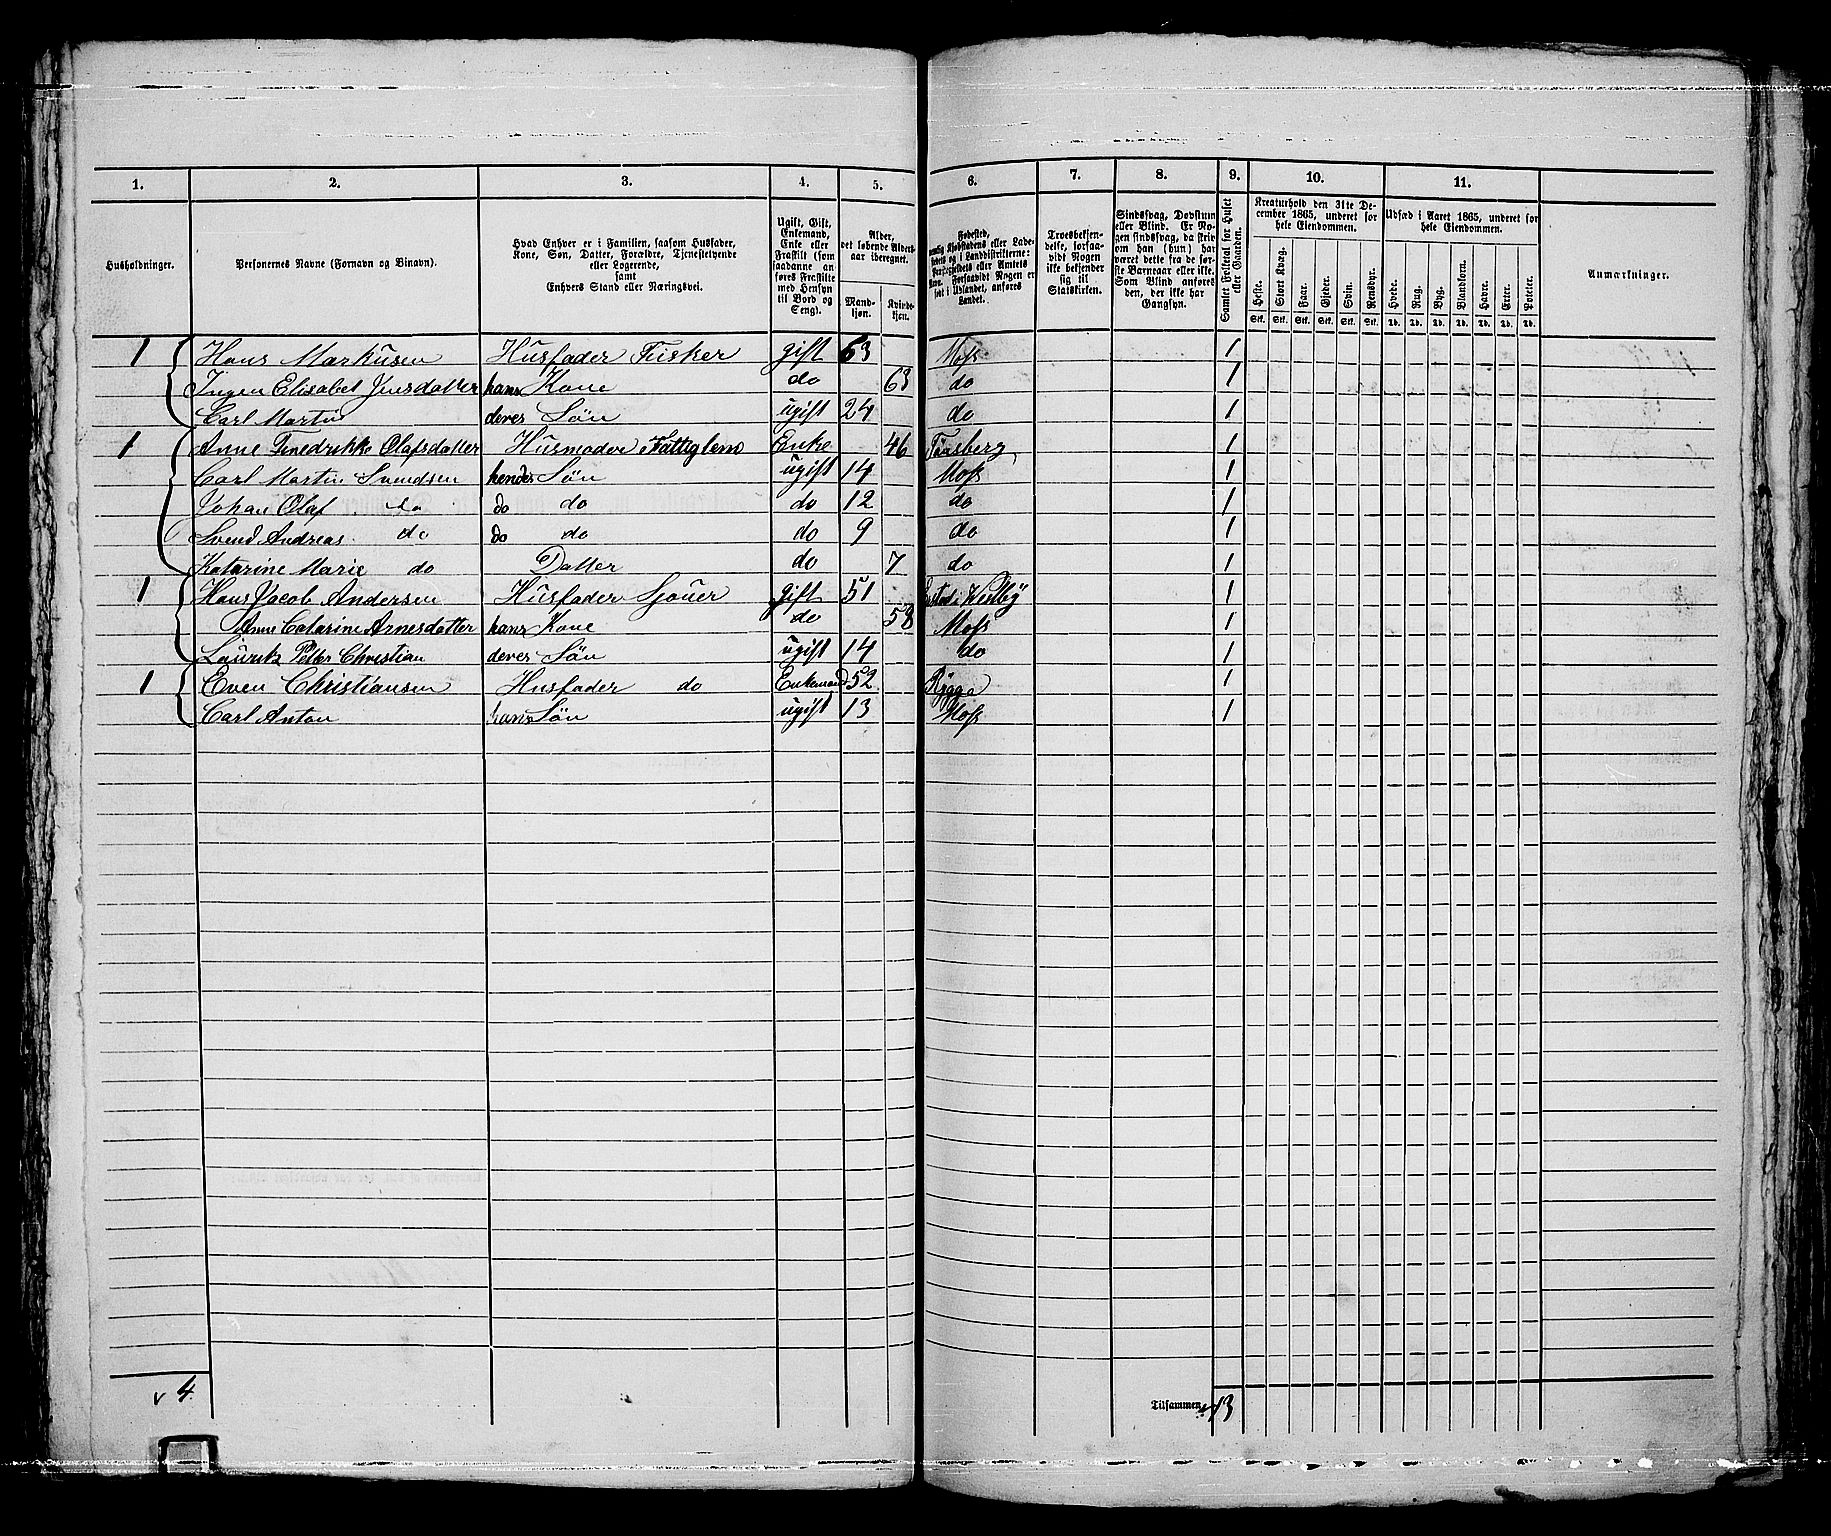 1. 2. 3. 4. 5. 6. 7. 8. 9. 10. 11.
Husholdninger.
Personernes Navne (Fornavn og Binavn).
Hvad Enhver er i Familien, saasom Husfader,
Kone, Søn, Datter, Forældre, Tjenestetyende
eller Logerende,
samt
Enhvers Stand eller Næringsvei.
Ugift, Gift,
Enkemand,
Enke eller
Fraskilt (som
saadanne an-
føres Fraskilte
med Hensyn
til Bord og
Seng).
Alder,
det løbende Alders-
aar iberegnet.
Mand-
kjøn.
Kvinde-
kjøn.
Fødested,
Kjøbstadens eller Lade-
stedets og i Landdistrikterne:
Præstegjeldets eller Amtets
Navn. Forsaavidt Nogen er
født i Udlandet, anføres
Landet.
Troesbekjen-
delse, forsaa-
vidt Nogen
ikke bekjender
sig til
Statskirken.
Sindssvag, Døvstum
eller Blind. Er No-
gen sindssvag, da skriv
om han (hun) har
været dette fra de før-
ste Barneaar eller ikke.
Som Blind anføres
den, der ikke har
Gangsyn.
Samlet Folketal for Huset
eller Gaarden.
Kreaturhold den 31te De-
cember 1865, underet for
hele Eiendommen.
Heste. Stort Kvæg. Faar. Gjeder. Svin. Rensdyr.
Stk. Stk. Stk. Stk. Stk. Stk.
Udsæd i Aaret 1865, underet for
hele Eiendommen.
Hvede. Rug. Byg. Blandkorn. Havre. Erter. Poteter.
Td. Td. Td. Td. Td. Td. Td.
Anmærkninger.
1 Hans Markusen Husfader Fisker gift 63 Moss 1
Ingen Elisabet Jensdatter hans Kone do 63 do 1
Carl Martin deres Søn ugift 24 do 1
1 Anne Fredrikke Olafsdatter Husmoder Fattiglem Enke 46 Tønsberg 1
Carl Martin Svendsen hendes Søn ugift 14 Moss 1
Johan Olaf do do do do 12 do 1
Svend Andreas do do do do 9 do 1
Katarine Marie do Datter do 7 do 1
1 Hans Jacob Andersen Husfader Sjouer gift 51 1
Anne Catarine Arnesdatter hans Kone do 58 Moss 1
Lauritz Petter Christian deres Søn ugift 14 do 1
1 Even Christiansen Husfader do Enkemand 52 Rygge 1
Carl Anton hans Søn ugift 13 Moss 1
v 4.
Tilsammen 13